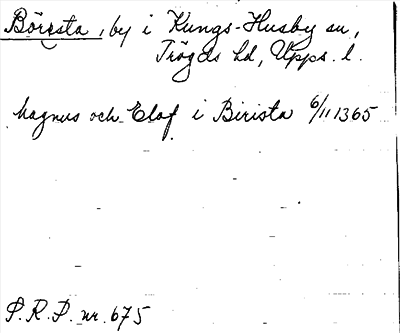 Börista, by i Kungs-Husby sn,
Trögds hd, Upps. l.
Magnus och Elof i Birista 6/11 1365
S.R.P. nr. 675